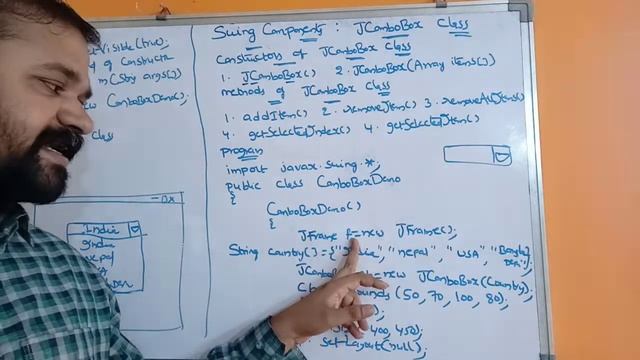 Swing Components : JComboBox class
Constructors of JComboBox class
1. JComboBox() 2. JComboBox(Array items[])
methods of JComboBox class
1. addItem() 2. removeItem() 3. removeAllItems()
4. getSelectedIndex() 4. getSelectedItem()
program
import javax.swing.*;
public class ComboBoxDemo
{
ComboBoxDemo()
{
JFrame f=new JFrame();
String country[]={"India", "nepal", "USA", "Bangla
Desh"};
=new JComboBox(Country);
(50, 70, 100, 80);
400, 450);
setLayout(null);
Visible(true);
of Constructor
m(String args[])
new ComboBoxDemo();
class
India
India